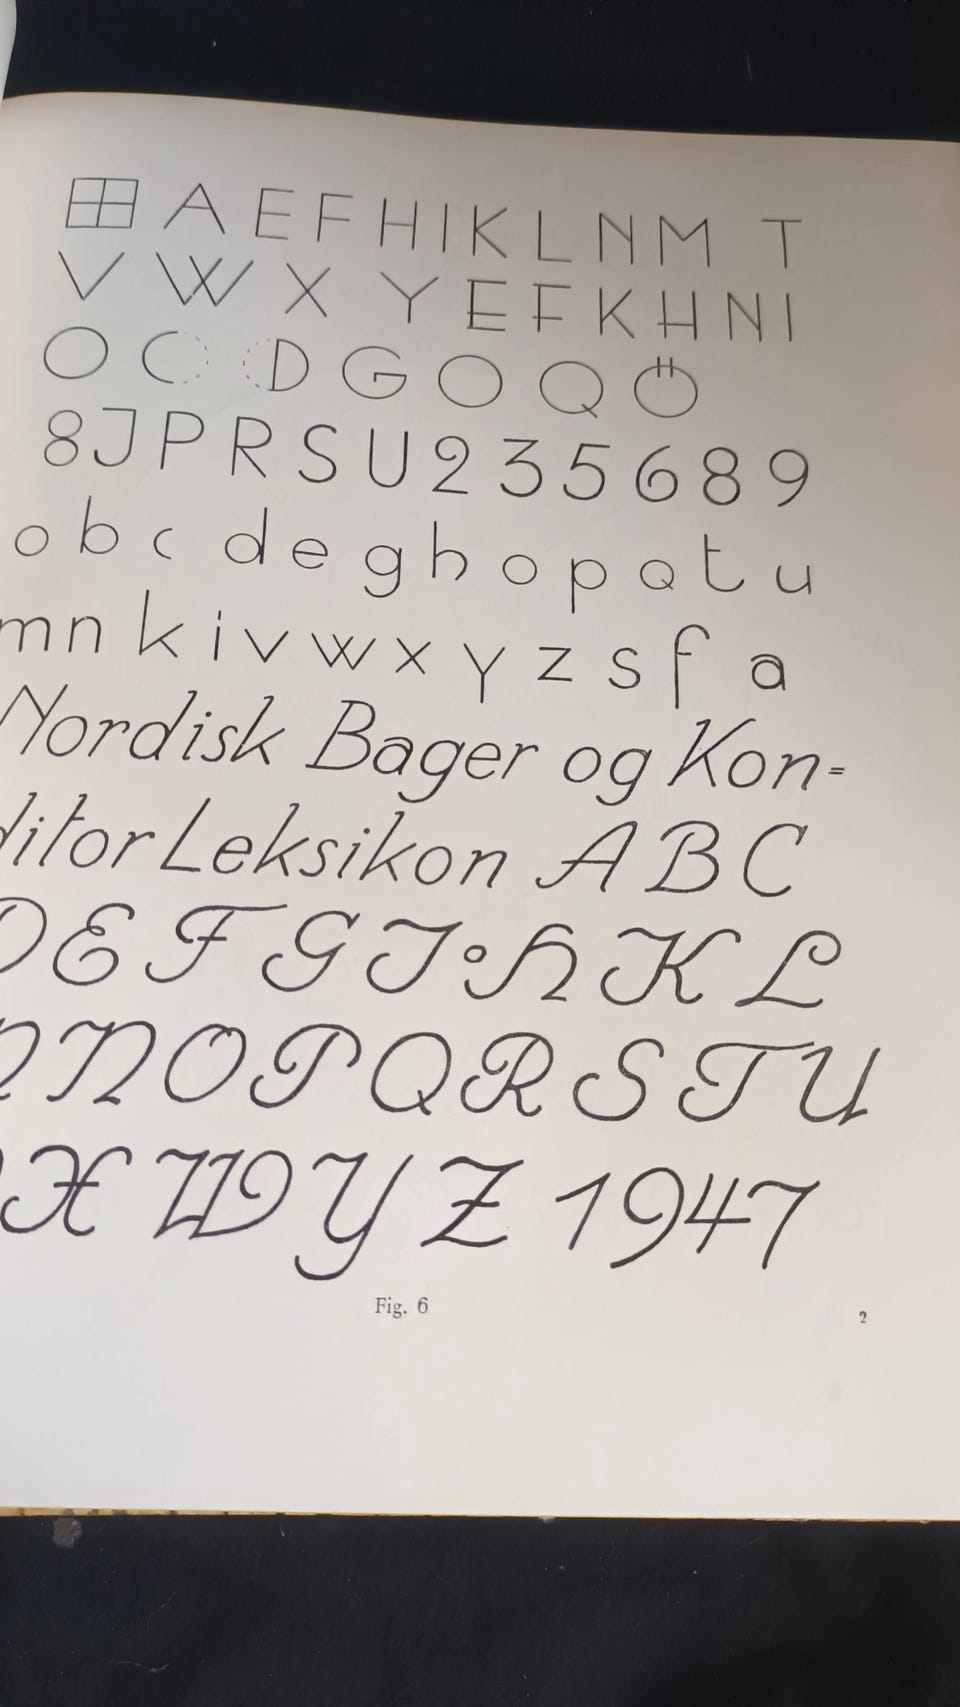 A E F H I K L N M T
V W X Y E F K H N I
O C D G O Q Ö
8 J P R S U 2 3 5 6 8 9
o b c d e g h o p q t u
m n k i v w x y z s f a
Nordisk Bager og Kon-
ditor Leksikon A B C
D E F G J • H K L
N O P Q R S T U
X W Y Z 1947
Fig. 6
2